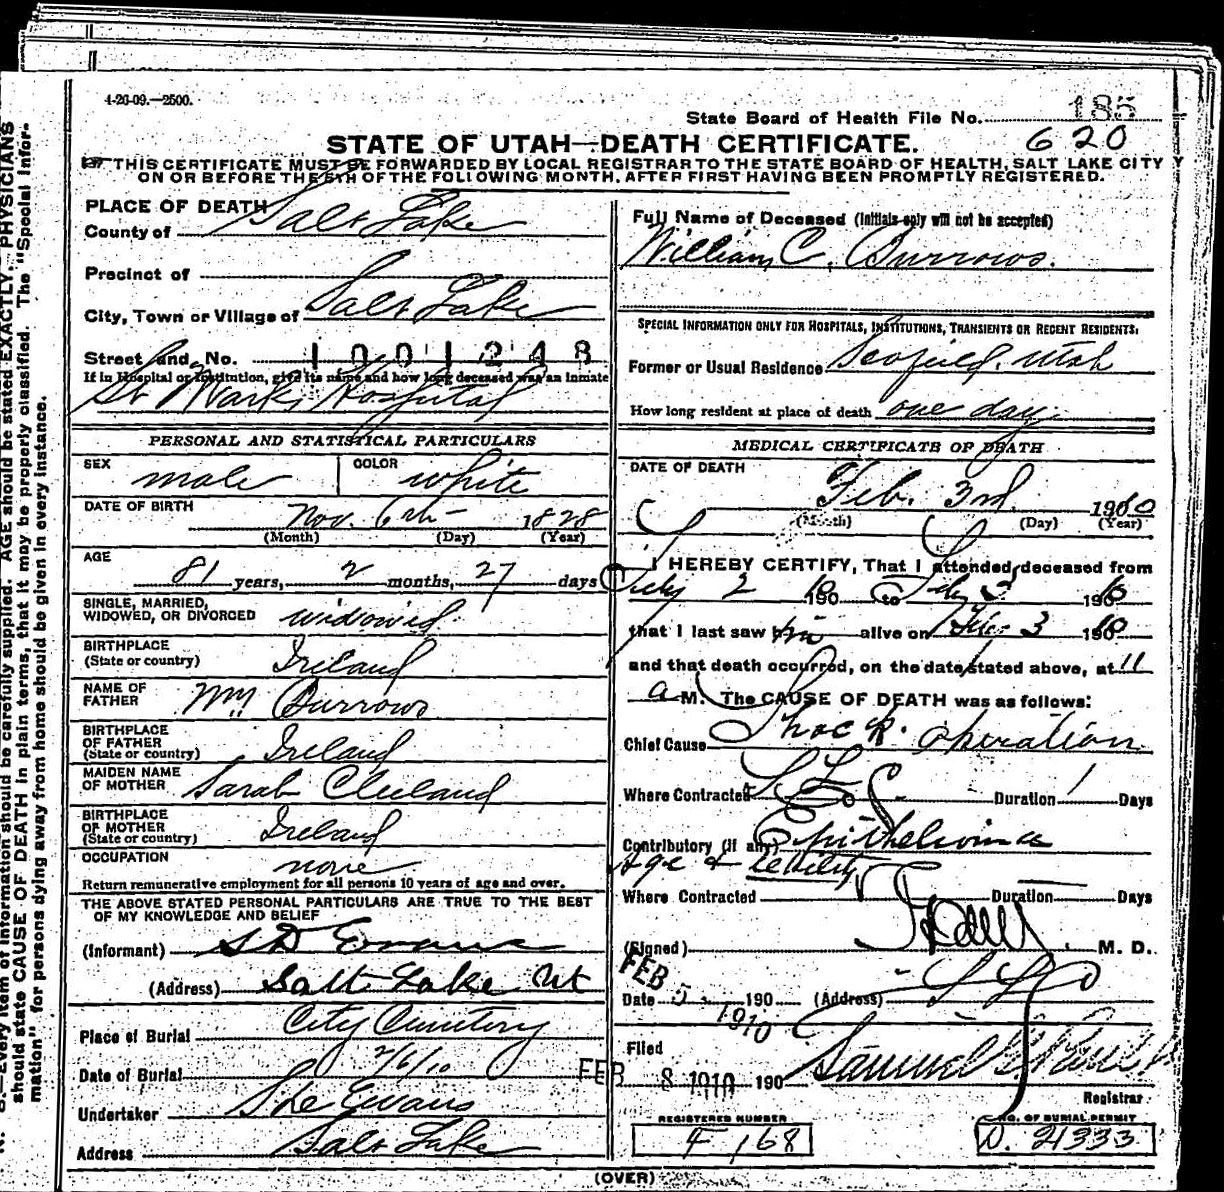 4-26-09.—2500.
State Board of Health File No. 185
620
STATE OF UTAH—DEATH CERTIFICATE.
THIS CERTIFICATE MUST BE FORWARDED BY LOCAL REGISTRAR TO THE STATE BOARD OF HEALTH, SALT LAKE CITY
ON OR BEFORE THE 5TH OF THE FOLLOWING MONTH, AFTER FIRST HAVING BEEN PROMPTLY REGISTERED.
PLACE OF DEATH
County of Salt Lake
Precinct of
City, Town or Village of Salt Lake
Street and No. 1001248
If in Hospital or Institution, give its name and how long deceased was an inmate
St Marks Hospital
PERSONAL AND STATISTICAL PARTICULARS
SEX male COLOR white
DATE OF BIRTH Nov. 6th 1828
(Month) (Day) (Year)
AGE 81 years, 2 months, 27 days
SINGLE, MARRIED,
WIDOWED, OR DIVORCED widowed
BIRTHPLACE
(State or country) Ireland
NAME OF
FATHER Wm Burrows
BIRTHPLACE
OF FATHER
(State or country) Ireland
MAIDEN NAME
OF MOTHER Sarah Cleland
BIRTHPLACE
OF MOTHER
(State or country) Ireland
OCCUPATION none
Return remunerative employment for all persons 10 years of age and over.
THE ABOVE STATED PERSONAL PARTICULARS ARE TRUE TO THE BEST
OF MY KNOWLEDGE AND BELIEF
(Informant) S D Evans
(Address) Salt Lake Ut
Place of Burial City Cemetery
Date of Burial 2/6/10
Undertaker S D Evans
Address Salt Lake
Full Name of Deceased (Initials only will not be accepted)
William C. Burrows.
SPECIAL INFORMATION ONLY FOR HOSPITALS, INSTITUTIONS, TRANSIENTS OR RECENT RESIDENTS.
Former or Usual Residence Scofield, Utah
How long resident at place of death one day
MEDICAL CERTIFICATE OF DEATH
DATE OF DEATH Feb. 3rd 1910
(Month) (Day) (Year)
I HEREBY CERTIFY, That I attended deceased from
Feby 2 1910 to Feby 3 1910
that I last saw him alive on Feb. 3 1910
and that death occurred, on the date stated above, at 11
a M. The CAUSE OF DEATH was as follows:
Chief Cause Shock. operation
Where Contracted S L C Duration 1 Days
Contributory (if any) Epithelioma
Age & senility
Where Contracted Duration Days
(Signed) M. D.
FEB
Date 5 190 (Address) S L C
1910
Filed FEB 8 1910 190 Samuel G Paul
Registrar
REGISTERED NUMBER
F 168
NO. OF BURIAL PERMIT
D. 21333
(OVER)
B.—Every item of information should be carefully supplied. AGE should be stated EXACTLY. PHYSICIANS
should state CAUSE OF DEATH in plain terms, that it may be properly classified. The "Special Infor-
mation" for persons dying away from home should be given in every instance.